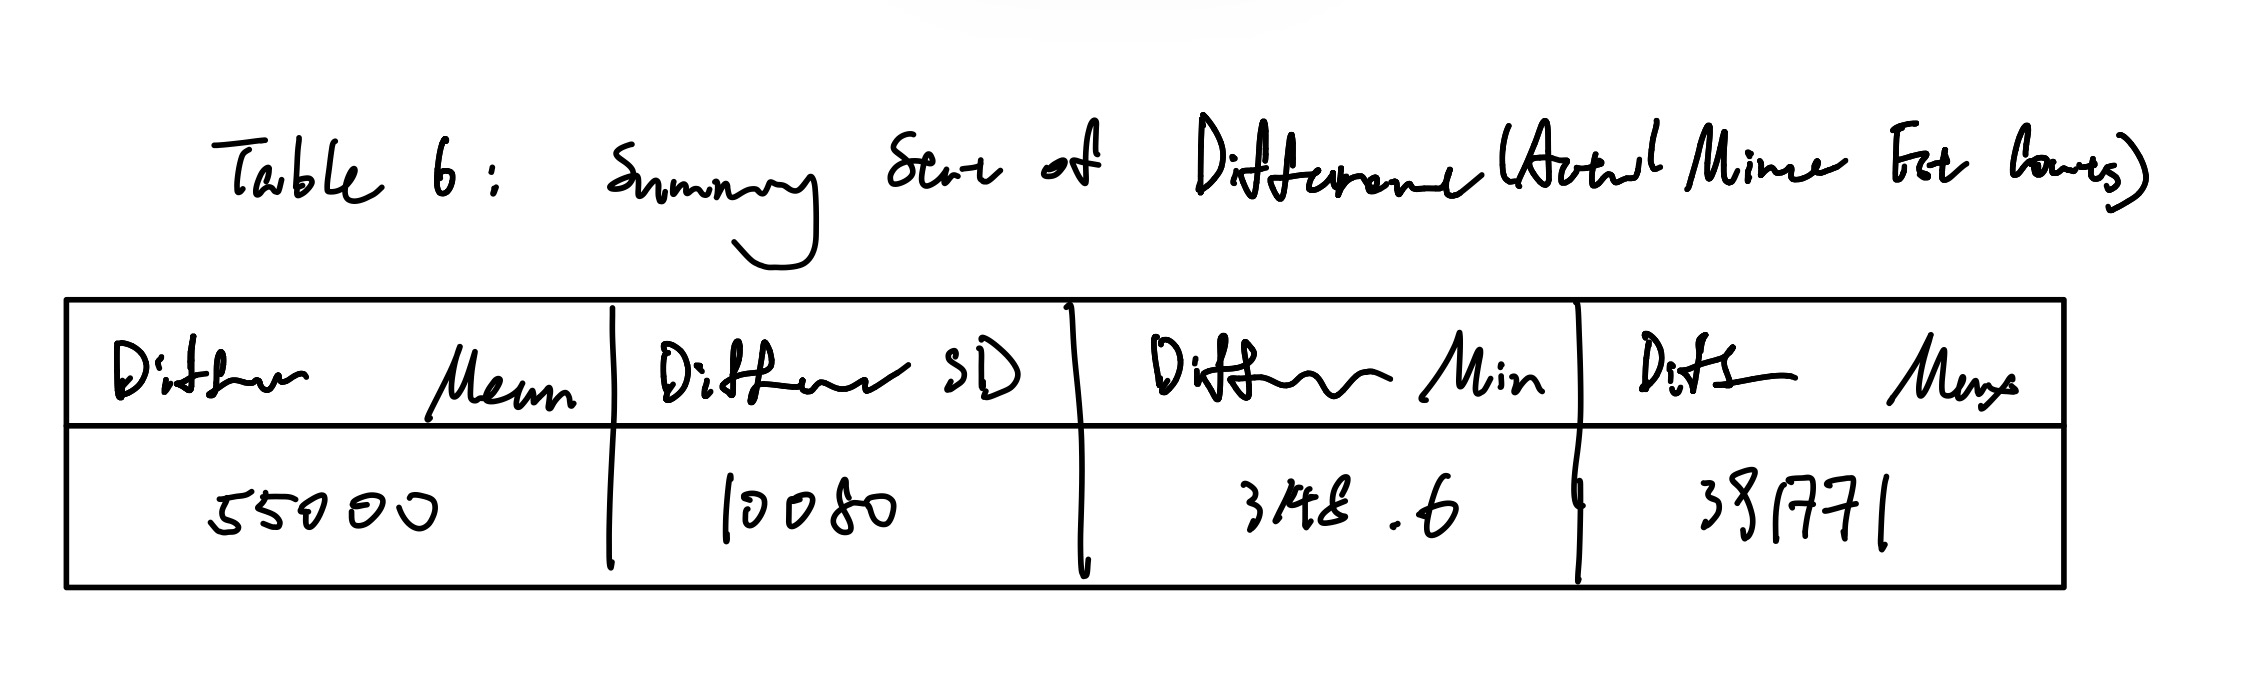 Table 6: Summary of Difference (Actual Minus Est Counts)
Difference Mean Difference SD Difference Min Diff Max
55000 10080 3148.6 391771